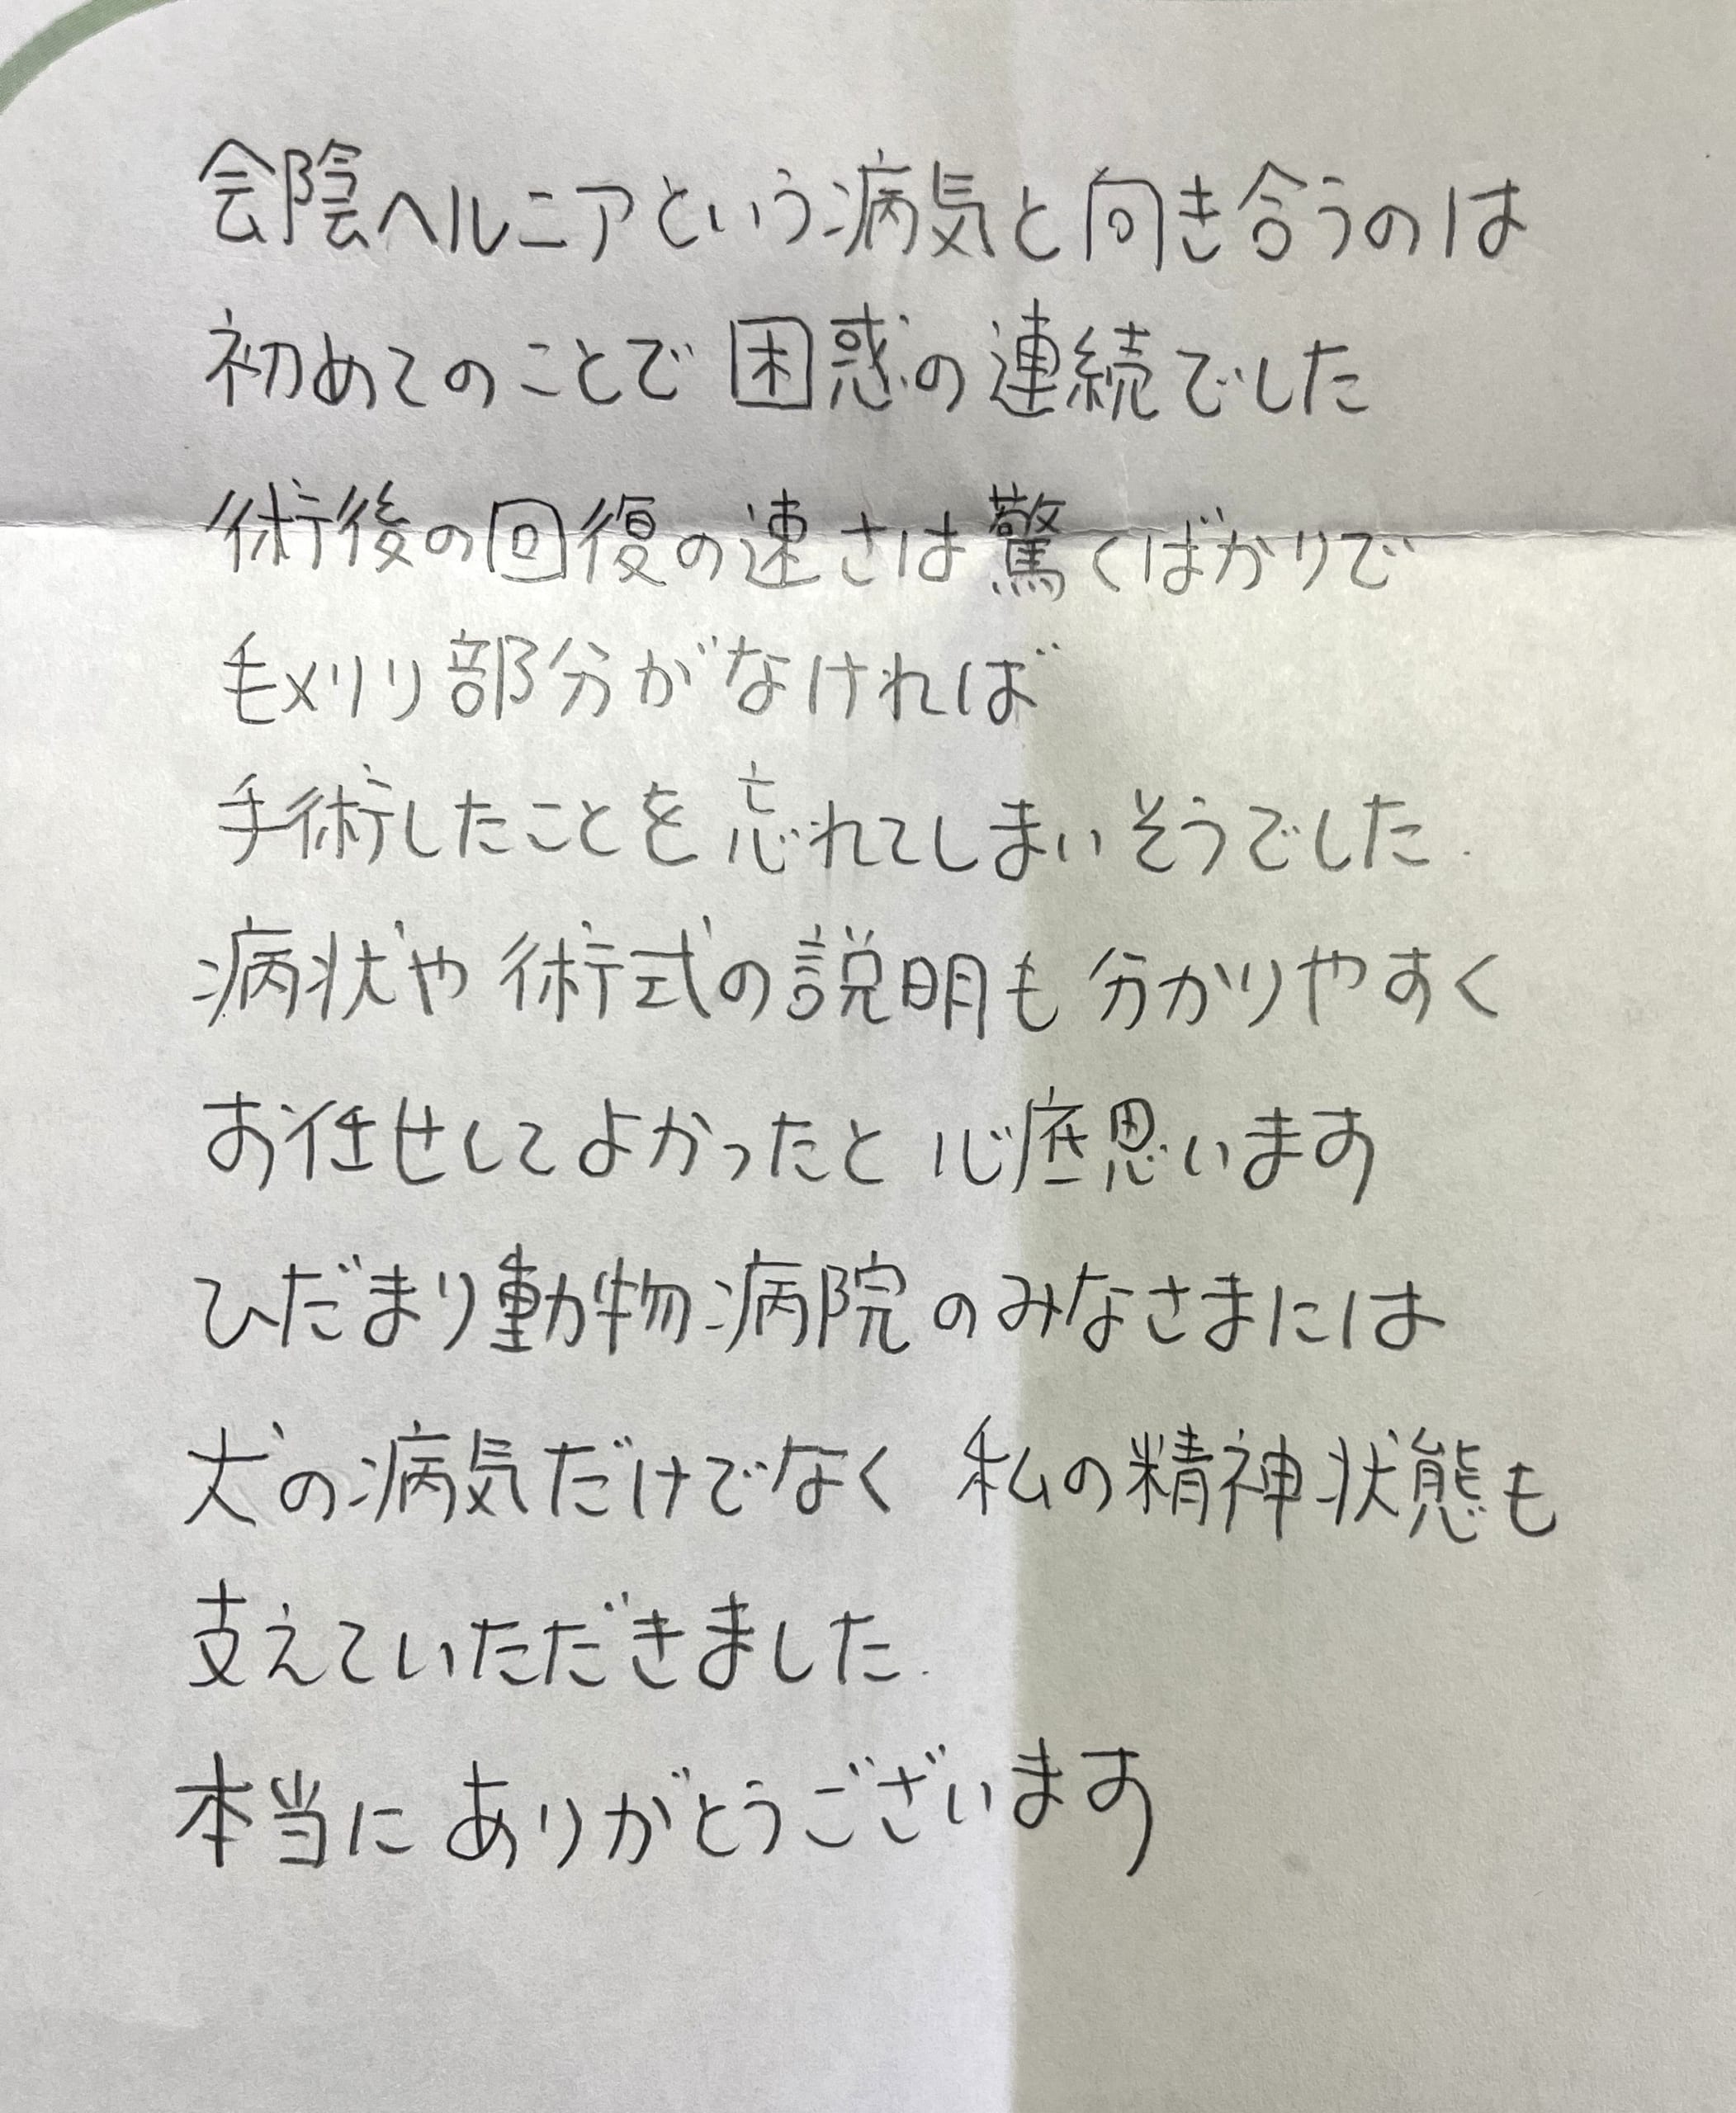 会陰ヘルニアという病気と向き合うのは
初めてのことで困惑の連続でした
術後の回復の速さは驚くばかりで
毛刈り部分がなければ
手術したことを忘れてしまいそうでした.
病状や術式の説明も分かりやすく
お任せしてよかったと心底思います
ひだまり動物病院のみなさまには
犬の病気だけでなく 私の精神状態も
支えていただきました.
本当にありがとうございます